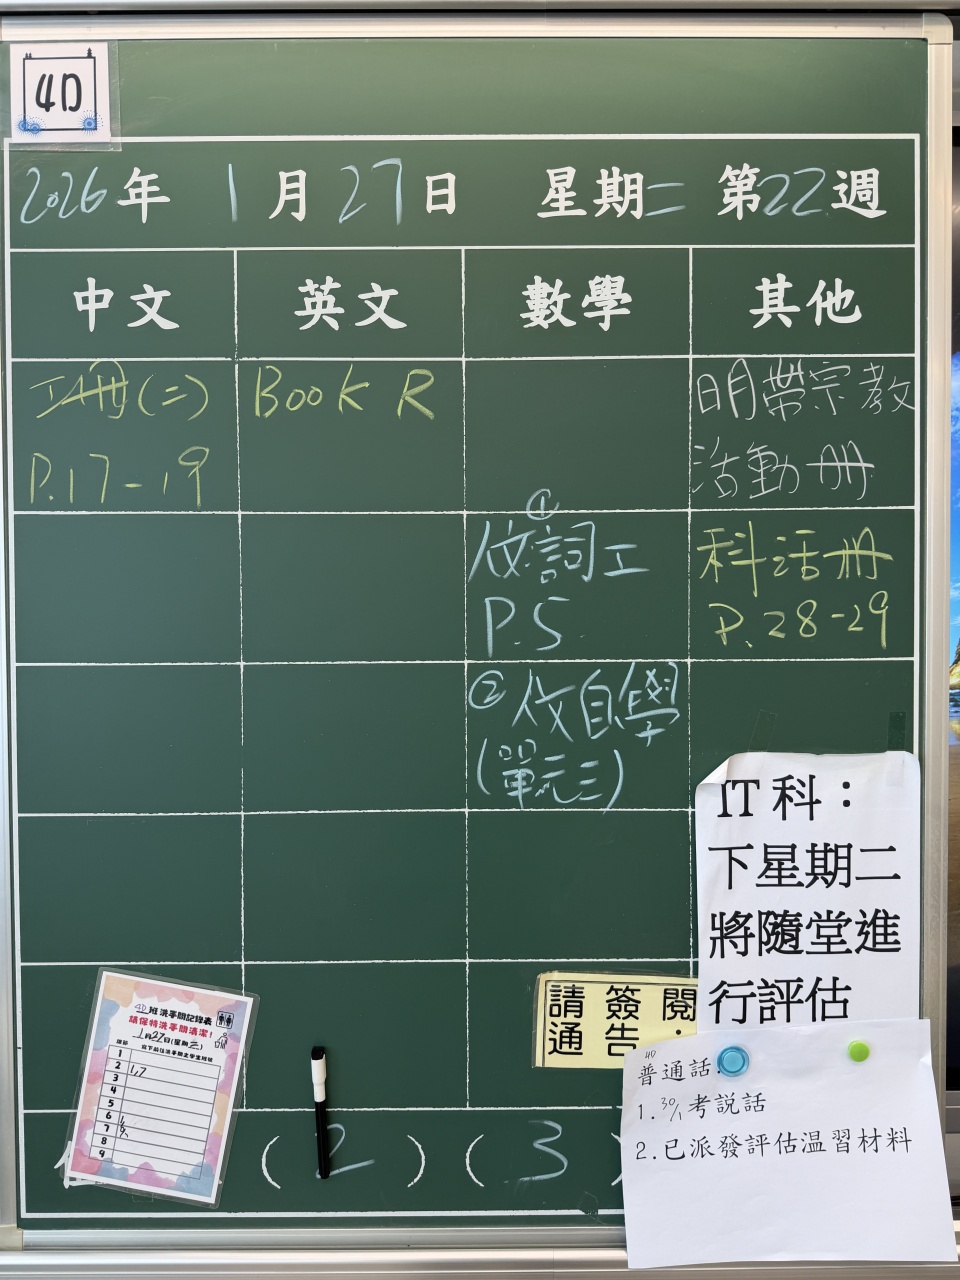 4D
2026年 1月27日 星期二 第22週
中文 英文 數學 其他
工冊(二)
P.17-19
BooK R
明帶宗教
活動冊
①
改詞工
P.5
科活冊
P.28-29
②改自學
(單元三)
IT科：
下星期二
將隨堂進
行評估
請簽閱
通告：
4D
普通話:
1. 30/1考說話
2.已派發評估溫習材料
4D班洗手間記錄表
請保持洗手間清潔!
1月27日(星期二)
1
2
3
4
5
6
7
8
9
(2) (3